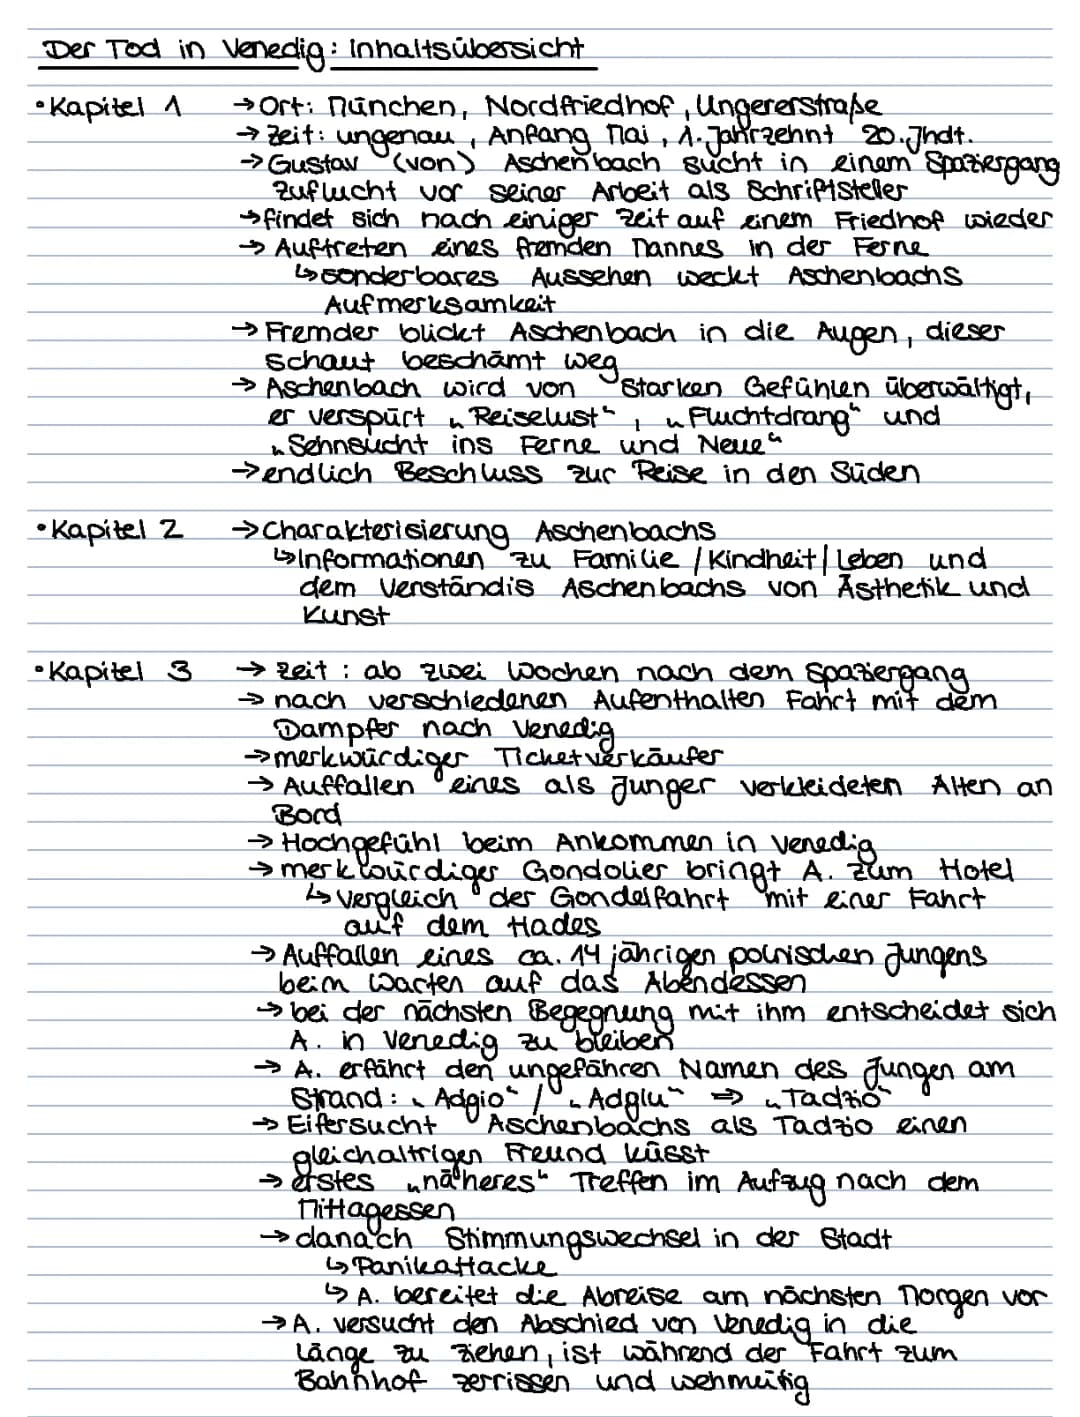 Der Tod in Venedig: Inhaltsübersicht
• Kapitel 1 → Ort: München, Nordfriedhof, Ungererstraße
→ Zeit: ungenau, Anfang Mai, 1. Jahrzehnt 20. Jhdt.
→ Gustav (von) Aschenbach sucht in einem Spaziergang
Zuflucht vor seiner Arbeit als Schriftsteller
→ findet sich nach einiger Zeit auf einem Friedhof wieder
→ Auftreten eines fremden Mannes in der Ferne
↳ sonderbares Aussehen weckt Aschenbachs
Aufmerksamkeit
→ Fremder blickt Aschenbach in die Augen, dieser
schaut beschämt weg
→ Aschenbach wird von starken Gefühlen überwältigt,
er verspürt „Reiselust“, „Fluchtdrang“ und
„Sehnsucht ins Ferne und Neue“
→ endlich Beschluss zur Reise in den Süden
• Kapitel 2 → Charakterisierung Aschenbachs
↳ Informationen zu Familie / Kindheit / Leben und
dem Verständis Aschenbachs von Ästhetik und
Kunst
• Kapitel 3 → Zeit: ab zwei Wochen nach dem Spaziergang
→ nach verschiedenen Aufenthalten Fahrt mit dem
Dampfer nach Venedig
→ merkwürdiger Ticketverkäufer
→ Auffallen eines als Junger verkleideten Alten an
Bord
→ Hochgefühl beim Ankommen in Venedig
→ merkwürdiger Gondolier bringt A. zum Hotel
↳ Vergleich der Gondelfahrt mit einer Fahrt
auf dem Hades
→ Auffallen eines ca. 14 jährigen polnischen Jungens
beim Warten auf das Abendessen
→ bei der nächsten Begegnung mit ihm entscheidet sich
A. in Venedig zu bleiben
→ A. erfährt den ungefähren Namen des Jungen am
Strand: „Adgio“ / „Adgiu“ ⇒ „Tadzio“
→ Eifersucht Aschenbachs als Tadzio einen
gleichaltrigen Freund küsst
→ erstes „näheres“ Treffen im Aufzug nach dem
Mittagessen
→ danach Stimmungswechsel in der Stadt
↳ Panikattacke
↳ A. bereitet die Abreise am nächsten Morgen vor
→ A. versucht den Abschied von Venedig in die
Länge zu ziehen, ist während der Fahrt zum
Bahnhof zerrissen und wehmütig